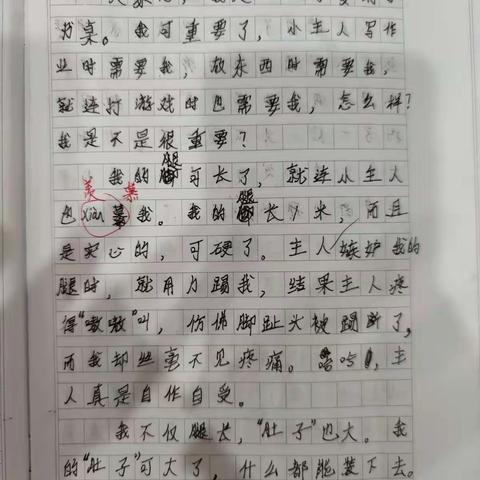 书桌。我可重要了，小主人写作
业时需要我，放东西时需要我，
就连打游戏时也需要我，怎么样？
我是不是很重要？
腿
我的可长了，就连小主人
羡慕
也xiàn慕我。我的腿长1米，而且
是实心的，可硬了。主人嫉妒我的
腿时，就用力踢我，结果主人疼
得“嗷嗷”叫，仿佛脚趾头被踢断了，
而我却丝毫不见疼痛。主
人真是自作自受。
我不仅腿长，“肚子”也大。我
的“肚子”可大了，什么都能装下去。